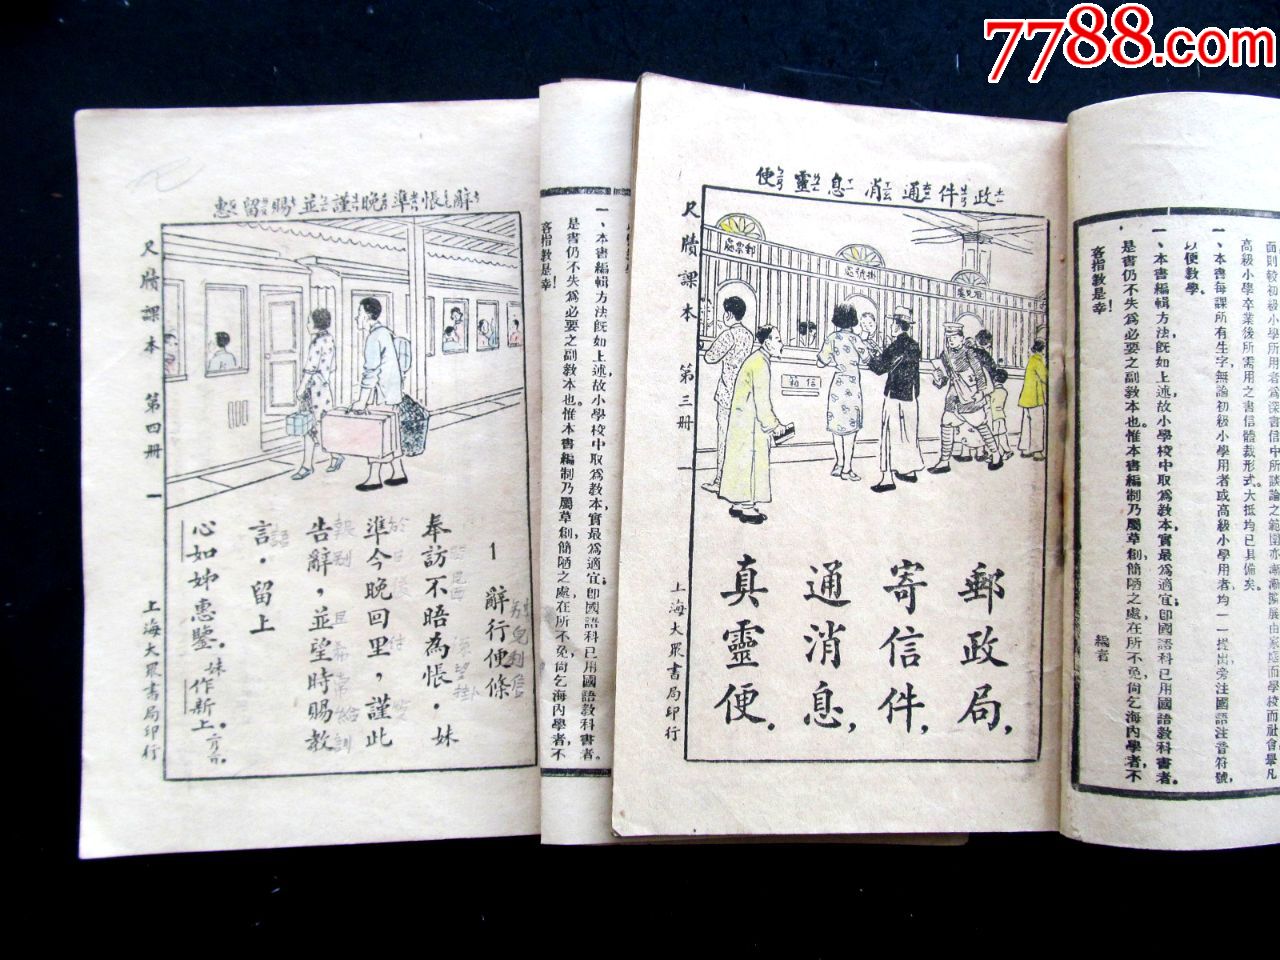 7788.com
政件通消息靈便
尺牘課本 第三冊
上海大眾書局印行
郵票處
掛號處
信箱
郵政局，
寄信件，
通消息，
真靈便。
辭悵準晚謹並賜留惠
尺牘課本 第四冊 一
上海大眾書局印行
1 辭行便條
奉訪不晤為悵．妹
準今晚回里，謹此
告辭，並望時賜教
言．留上
心如姊惠鑒． 妹作新上．
高級小學卒業後所需用之書信體裁形式。大抵均已具備矣。
一、本書每課所有生字無論初級小學用者或高級小學用者均一一提出旁注國語注音符號，
以便教學。
一、本書編輯方法既如上述故小學校中取為教本，實最為適宜；卽國語科已用國語教科書者。
是書仍不失為必要之副教本也。惟本書編制乃屬草創簡陋之處在所不免尚乞海內學者，不
吝指教是幸！
編者
一、本書編輯方法既如上述故小學校中取為教本，實最為適宜；卽國語科已用國語教科書者。
是書仍不失為必要之副教本也。惟本書編制乃屬草創簡陋之處在所不免尚乞海內學者，不
吝指教是幸！